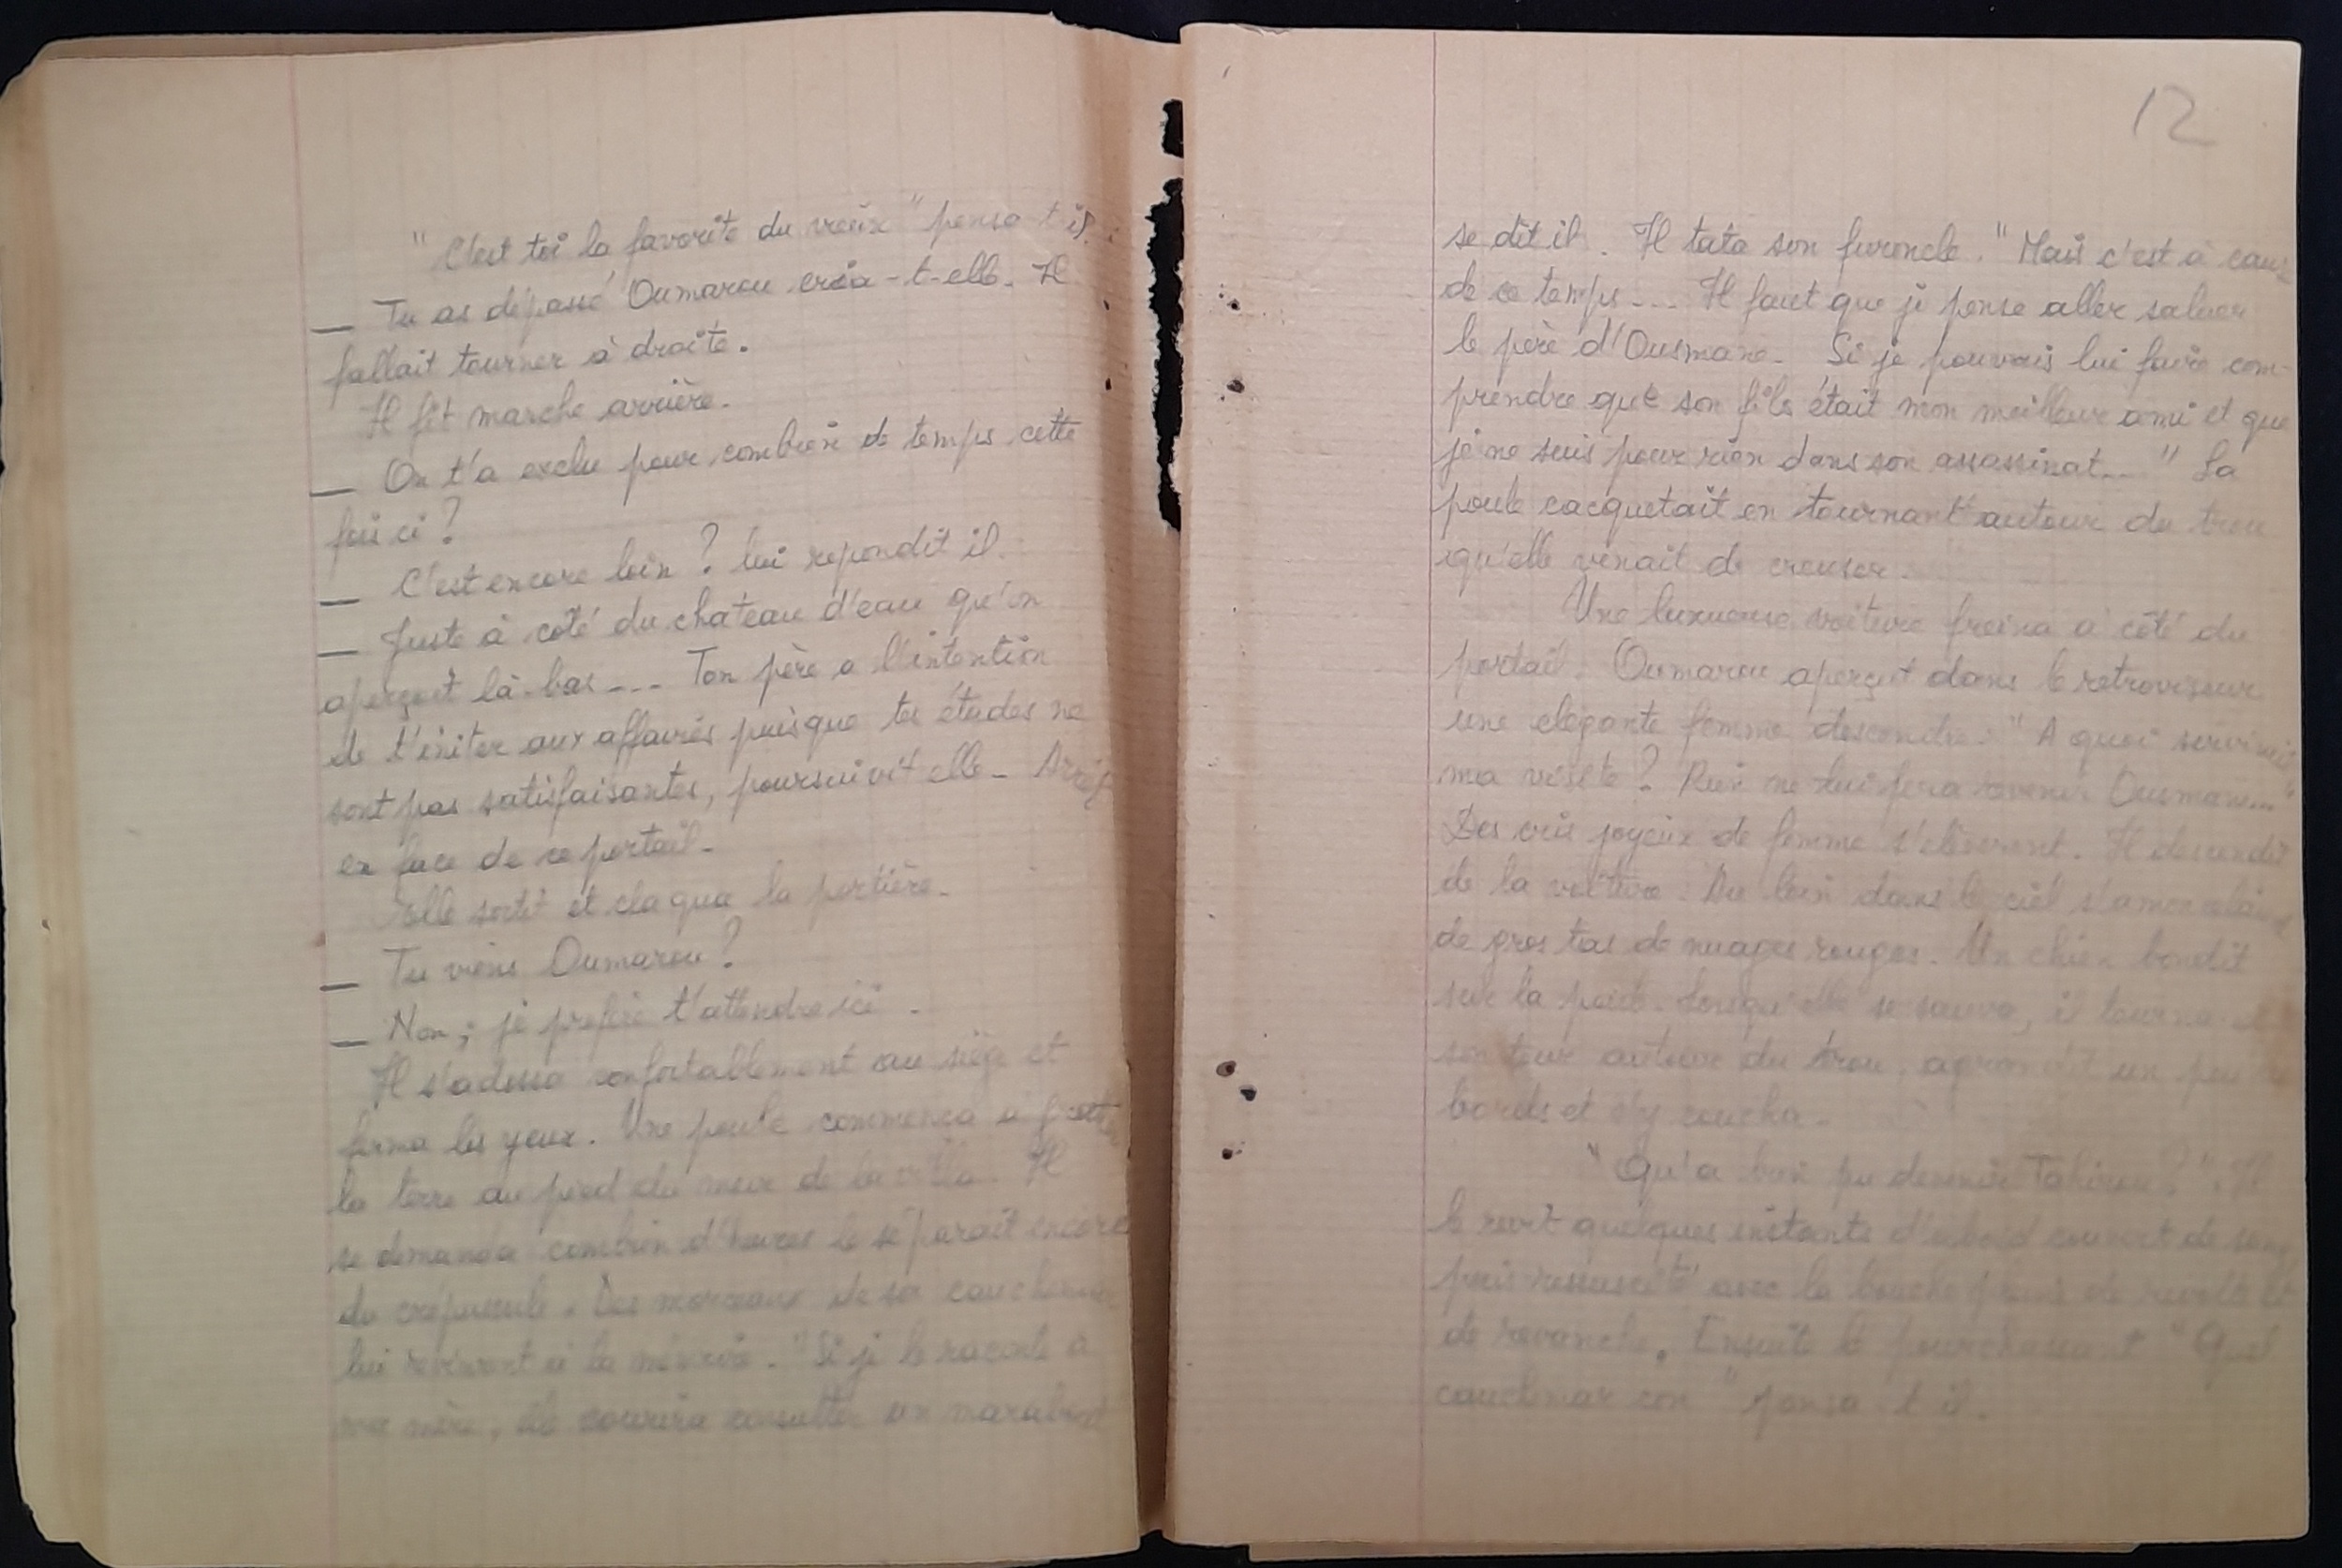 " C'est toi la favorite du vieux " pensa t-il.
— Tu as dépassé Oumarou cria-t-elle. Il
fallait tourner à droite.
Il fit marche arrière.
— On t'a exclu pour combien de temps cette
fois ci ?
— C'est encore loin ? lui repondit il.
— Juste à coté du chateau d'eau qu'on
aperçoit là-bas --- Ton père a l'intention
de t'initer aux affaires puisque tes études ne
sont pas satisfaisantes, poursuivit elle - Arrête
en face de ce portail -
Elle sortit et claqua la portière -
— Tu viens Oumarou ?
— Non ; je prefère t'attendre ici .
Il s'adossa confortablement au siège et
ferma les yeux . Une poule commença à gratter
la terre au pied du mur de la villa . Il
se demanda combien d'heures le séparait encore
du crépuscule . Des morceaux de son cauchemar
lui revinrent à la mémoire . " Si je le raconte à
ma mère, elle courira consulter un marabout
12
se dit il . Il tata son furoncle . " Mais c'est à cause
de ce temps --- Il faut que je pense aller saluer
le père d'Ousmane - Si je pouvais lui faire com-
prendre que son fils était mon meilleur ami et que
je ne suis pour rien dans son assassinat -- " La
poule cacquetait en tournant autour du trou
qu'elle venait de creuser .
Une luxueuse voiture freina à côté du
portail . Oumarou aperçut dans le retroviseur
une elegante femme descendre . " A quoi servirait
ma visite ? Rien ne lui fera revenir Ousmane... "
Des cris joyeux de femme s'élevèrent . Il descendit
de la voiture . Au loin dans le ciel s'amoncelaient
de gros tas de nuages rouges . Un chien bondit
sur la poule . Lorsqu'elle se sauva, il tourna à
son tour autour du trou, agrandit un peu les
bords et s'y coucha .
" Qu'a bien pu devenir Tahirou ? " . Il
le revit quelques instants d'abord couvert de sang
puis ressuscité avec la bouche pleine de revolte et
de revanche . Ensuite le pourchassant " Quel
cauchemar con " pensa t il .